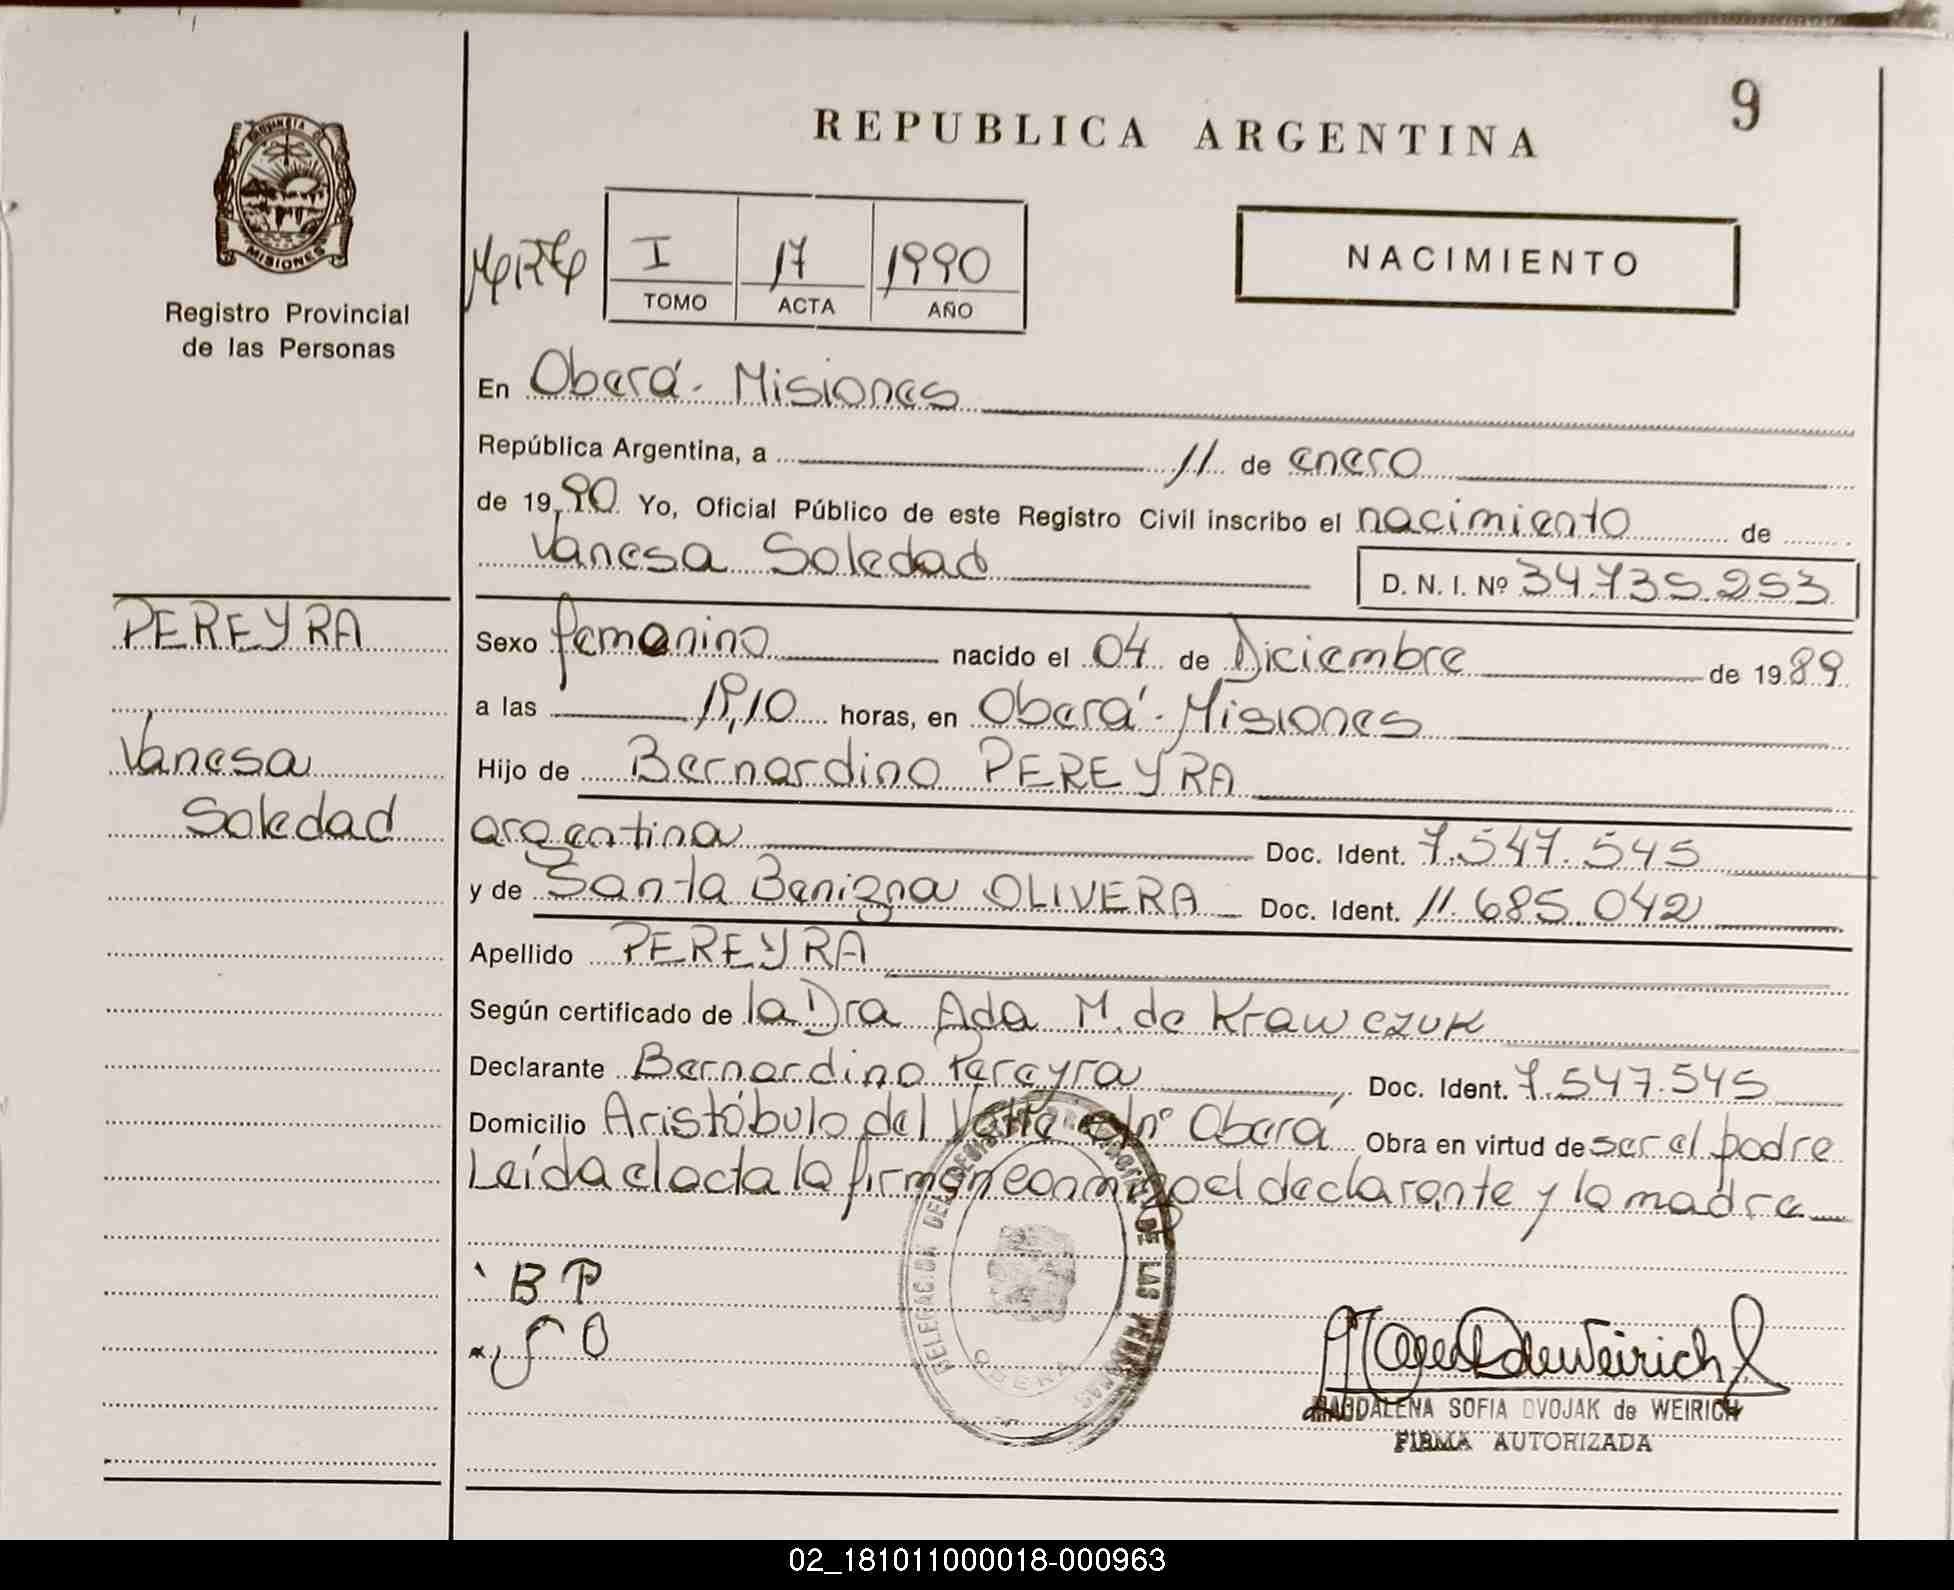 9
REPUBLICA ARGENTINA
PROVINCIA DE
MISIONES
Registro Provincial
de las Personas
I 17 1990
TOMO ACTA AÑO
NACIMIENTO
En Oberá - Misiones
República Argentina, a 11 de enero
de 1990 Yo, Oficial Público de este Registro Civil inscribo el nacimiento de
Vanesa Soledad
D. N. I. Nº 34.735.253
PEREYRA
Vanesa
Soledad
Sexo femenino nacido el 04 de Diciembre de 1989
a las 19,10 horas, en Oberá - Misiones
Hijo de Bernardino PEREYRA
argentina Doc. Ident. 7.547.545
y de Santa Benigna OLIVERA Doc. Ident. 11.685.042
Apellido PEREYRA
Según certificado de la Dra Ada M. de Krawczuk
Declarante Bernardino Pereyra, Doc. Ident. 7.547.545
Domicilio Aristóbulo del Valle s/nº Oberá Obra en virtud de ser el padre
Leída el acta la firman conmigo el declarante y la madre
B P
S O
DELEGACION DEL REGISTRO DE LAS PERSONAS
OBERA
MAGDALENA SOFIA DVOJAK de WEIRICH
FIRMA AUTORIZADA
02_181011000018-000963